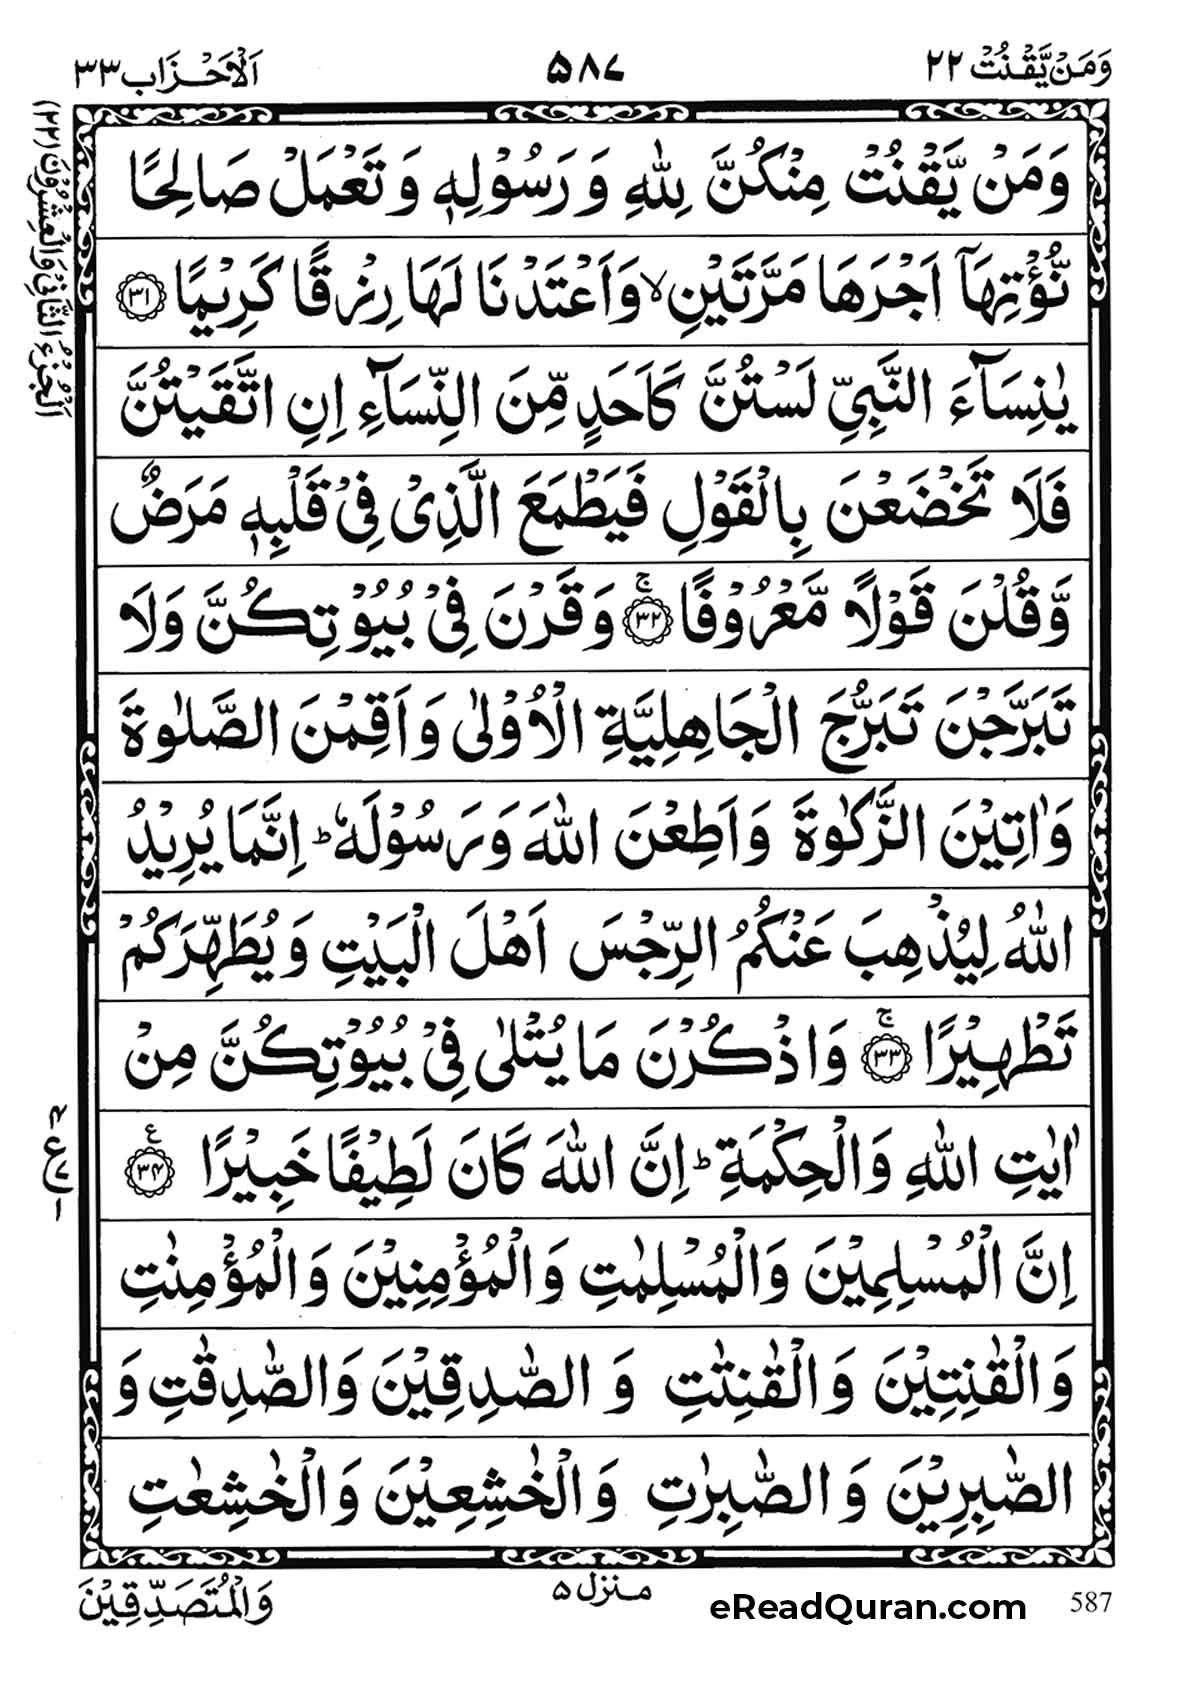 وَمَنْ يَّقْنُتْ ٢٢
۵۸۷
اَلْاَحْزَاب ٣٣
اَلْجُزْءُ الثَّانِیْ وَالْعِشْرُوْنَ (٢٢)
وَمَنْ يَّقْنُتْ مِنْكُنَّ لِلّٰهِ وَ رَسُوْلِهٖ وَ تَعْمَلْ صَالِحًا
نُّؤْتِهَاۤ اَجْرَهَا مَرَّتَيْنِ ۙ وَاَعْتَدْنَا لَهَا رِزْقًا كَرِيْمًا ﴿٣١﴾
يٰنِسَآءَ النَّبِيِّ لَسْتُنَّ كَاَحَدٍ مِّنَ النِّسَآءِ اِنِ اتَّقَيْتُنَّ
فَلَا تَخْضَعْنَ بِالْقَوْلِ فَيَطْمَعَ الَّذِيْ فِيْ قَلْبِهٖ مَرَضٌ
وَّقُلْنَ قَوْلًا مَّعْرُوْفًا ﴿٣٢﴾ ۚ وَقَرْنَ فِيْ بُيُوْتِكُنَّ وَلَا
تَبَرَّجْنَ تَبَرُّجَ الْجَاهِلِيَّةِ الْاُوْلٰى وَاَقِمْنَ الصَّلٰوةَ
وَاٰتِيْنَ الزَّكٰوةَ وَاَطِعْنَ اللّٰهَ وَرَسُوْلَهٗ ؕ اِنَّمَا يُرِيْدُ
اللّٰهُ لِيُذْهِبَ عَنْكُمُ الرِّجْسَ اَهْلَ الْبَيْتِ وَيُطَهِّرَكُمْ
تَطْهِيْرًا ﴿٣٣﴾ ۚ وَاذْكُرْنَ مَا يُتْلٰى فِيْ بُيُوْتِكُنَّ مِنْ
اٰيٰتِ اللّٰهِ وَالْحِكْمَةِ ؕ اِنَّ اللّٰهَ كَانَ لَطِيْفًا خَبِيْرًا ﴿٣٤﴾ ع
اِنَّ الْمُسْلِمِيْنَ وَالْمُسْلِمٰتِ وَالْمُؤْمِنِيْنَ وَالْمُؤْمِنٰتِ
وَالْقٰنِتِيْنَ وَالْقٰنِتٰتِ وَ الصّٰدِقِيْنَ وَالصّٰدِقٰتِ وَ
الصّٰبِرِيْنَ وَ الصّٰبِرٰتِ وَالْخٰشِعِيْنَ وَالْخٰشِعٰتِ
وَالْمُتَصَدِّقِيْنَ
منزل ۵
eReadQuran.com
587